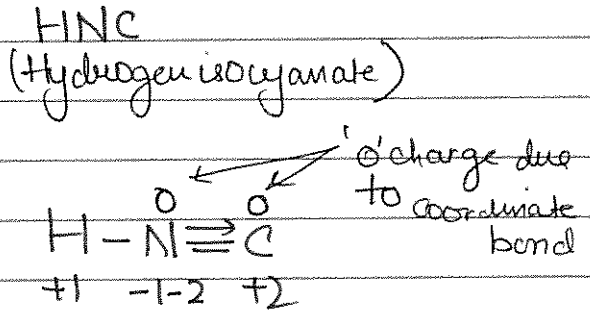 HNC
(Hydrogen isocyanate)
'0' charge due
to coordinate
bond
0 0
H - N ≡ C
+1 -1-2 +2